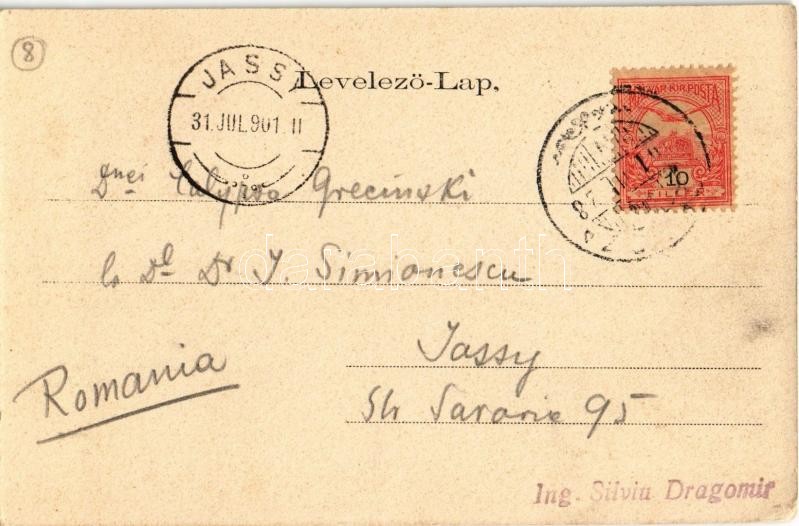 8
JASSY
31.JUL.901 11
Levelező-Lap.
MAGYAR KIR. POSTA
10
FILLÉR
Dnei Calypso Grecinski
La Dl Dr I. Simionescu
Jassy
Romania
Str Sararie 95
Ing. Silviu Dragomir
darabanth